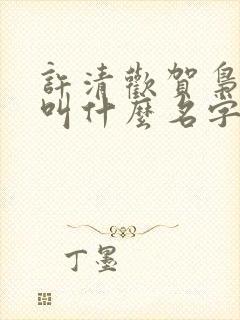 許清歡賀梟
叫什麼名字
丁墨